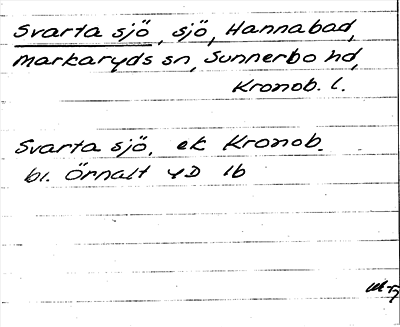 Svarta sjö, sjö, Hannabad,
Markaryds sn, Sunnerbo hd,
Kronob. l.
Svarta sjö. ek Kronob.
bl. Örnalt 4D 1b